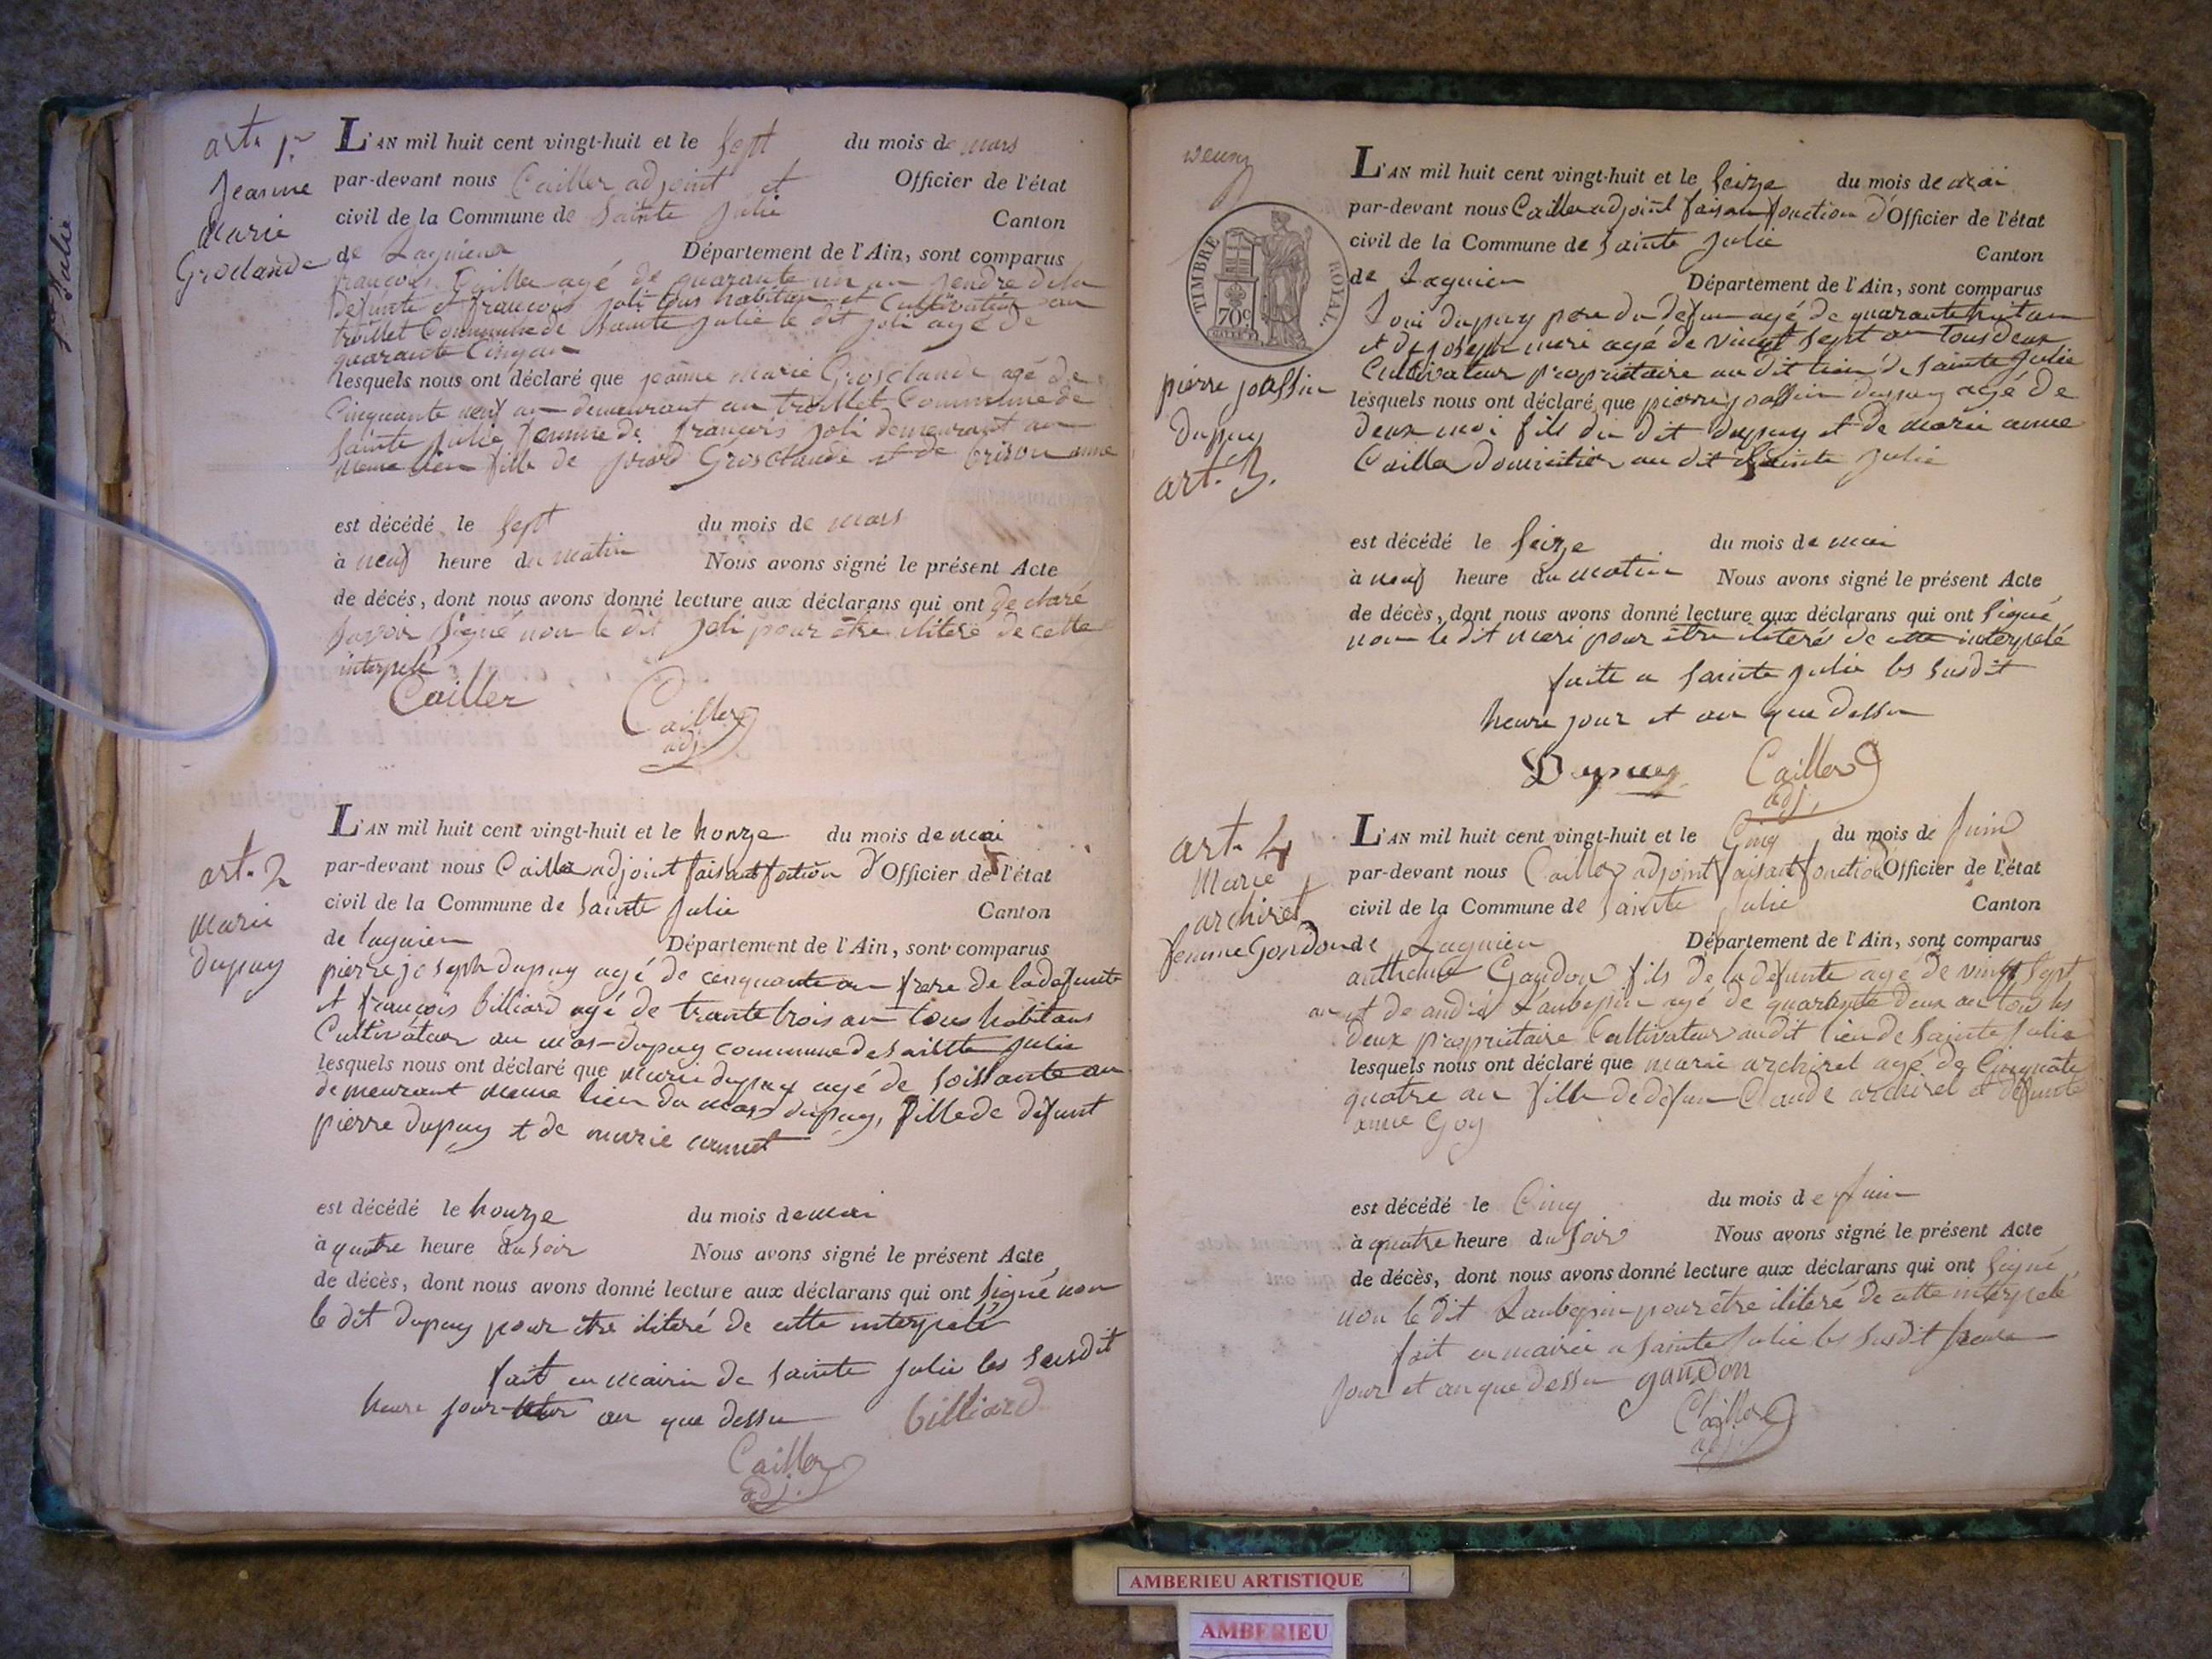 Ste Julie
art. 1er
Jeanne
Marie
Groclande
L'AN mil huit cent vingt-huit et le sept du mois de mars
par-devant nous Cailler adjoint et Officier de l'état
civil de la Commune de Sainte Julie Canton
de Lagnieu Département de l'Ain, sont comparus
françois Cailler agé de quarante un an gendre de la
defunte et françois joli tous habitan et Cultivateur au
trollet Commune de Sainte Julie le dit joli agé de
quarante Cinq an
lesquels nous ont déclaré que jeanne marie Grosclande agé de
Cinquante neuf an demeurant au trollet Commune de
Sainte Julie femme de françois joli demeurant au
meme lieu fille de Grosclande et de brison anne
est décédé le sept du mois de mars
à neuf heure du matin Nous avons signé le présent Acte
de décés, dont nous avons donné lecture aux déclarans qui ont declaré
savoir signé non le dit joli pour être iliteré de cette
interpelé
Cailler Cailler
adj.
art. 2
marie
dupuy
L'AN mil huit cent vingt-huit et le honze du mois de mai
par-devant nous Cailler adjoint faisant fontion d'Officier de l'état
civil de la Commune de Sainte Julie Canton
de lagnieu Département de l'Ain, sont comparus
pierre joseph dupuy agé de cenquante an frere de la defunte
et françois billiard agé de trante trois an tous habitans
Cultivateur au mas-dupuy commune de Sainte Julie
lesquels nous ont déclaré que Marie dupuy agé de soissante an
demeurant meme lieu du mas dupuy, fille de defunt
pierre dupuy et de marie
est décédé le honze du mois de mai
à quatre heure du soir Nous avons signé le présent Acte
de décès, dont nous avons donné lecture aux déclarans qui ont signé non
le dit dupuy pour etre iliteré de cette interpelé
fait en mairie de Sainte Julie les susdit
heure jour an que dessu billiard
Cailler
adj.
TIMBRE ROYAL.
70c
pierre joassin
dupuy
art. 3.
L'AN mil huit cent vingt-huit et le seize du mois de mai
par-devant nous Cailler adjoint faisan fonction d'Officier de l'état
civil de la Commune de Sainte Julie Canton
de Lagnieu Département de l'Ain, sont comparus
Loui dupuy pere du defun agé de quarante huit an
et de joseph meri agé de vingt sept an tous deux
Cultivateur propriétaire au dit lieu de Sainte Julie
lesquels nous ont déclaré que pierre joassin dupuy agé de
deux moi fils du dit dupuy et de marie anne
Cailler domicilier au dit Sainte Julie
est décédé le seize du mois de mai
à neuf heure du matin Nous avons signé le présent Acte
de décès, dont nous avons donné lecture aux déclarans qui ont signé
non le dit meri pour être iliteré de cette interpelé
faite a Sainte Julie les susdit
heure jour et an que dessu
Dupuy Cailler
adj.
art. 4
Marie
archirel
femme Gondon
L'AN mil huit cent vingt-huit et le Cinq du mois de Juin
par-devant nous Cailler adjoint faisant fonction Officier de l'état
civil de la Commune de Sainte Julie Canton
de Lagnieu Département de l'Ain, sont comparus
anthelme Gaudon fils de la defunte agé de vingt sept
an et de andré Laubepin agé de quarante deux an tous les
deux propriétaire Cultivateur au dit lieu de Sainte Julie
lesquels nous ont déclaré que marie archirel agé de Cinquante
quatre an fille de defun Claude archirel et defunte
anne Goy
est décédé le Cinq du mois de Juin
à quatre heure du soir Nous avons signé le présent Acte
de décès, dont nous avons donné lecture aux déclarans qui ont signé
non le dit Laubepin pour être iliteré de cette interpelé
fait en mairie a Sainte Julie les susdit heure
jour et an que dessu gaudon
Cailler
adj.
AMBERIEU ARTISTIQUE
AMBERIEU